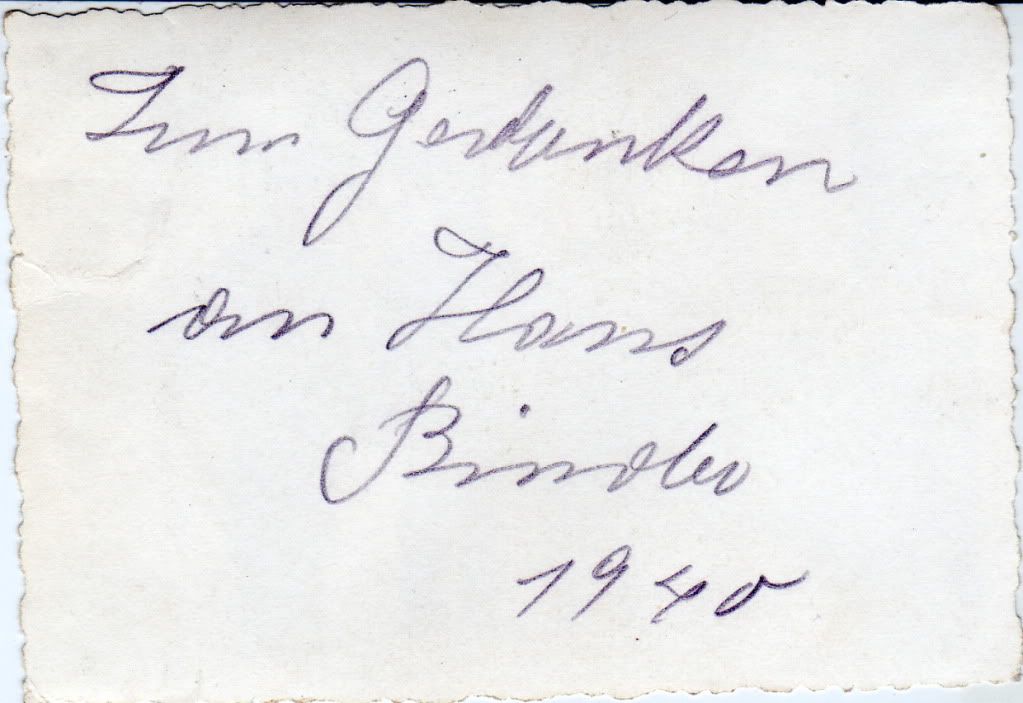 Zum Gedanken
an Hans
Binder
1940